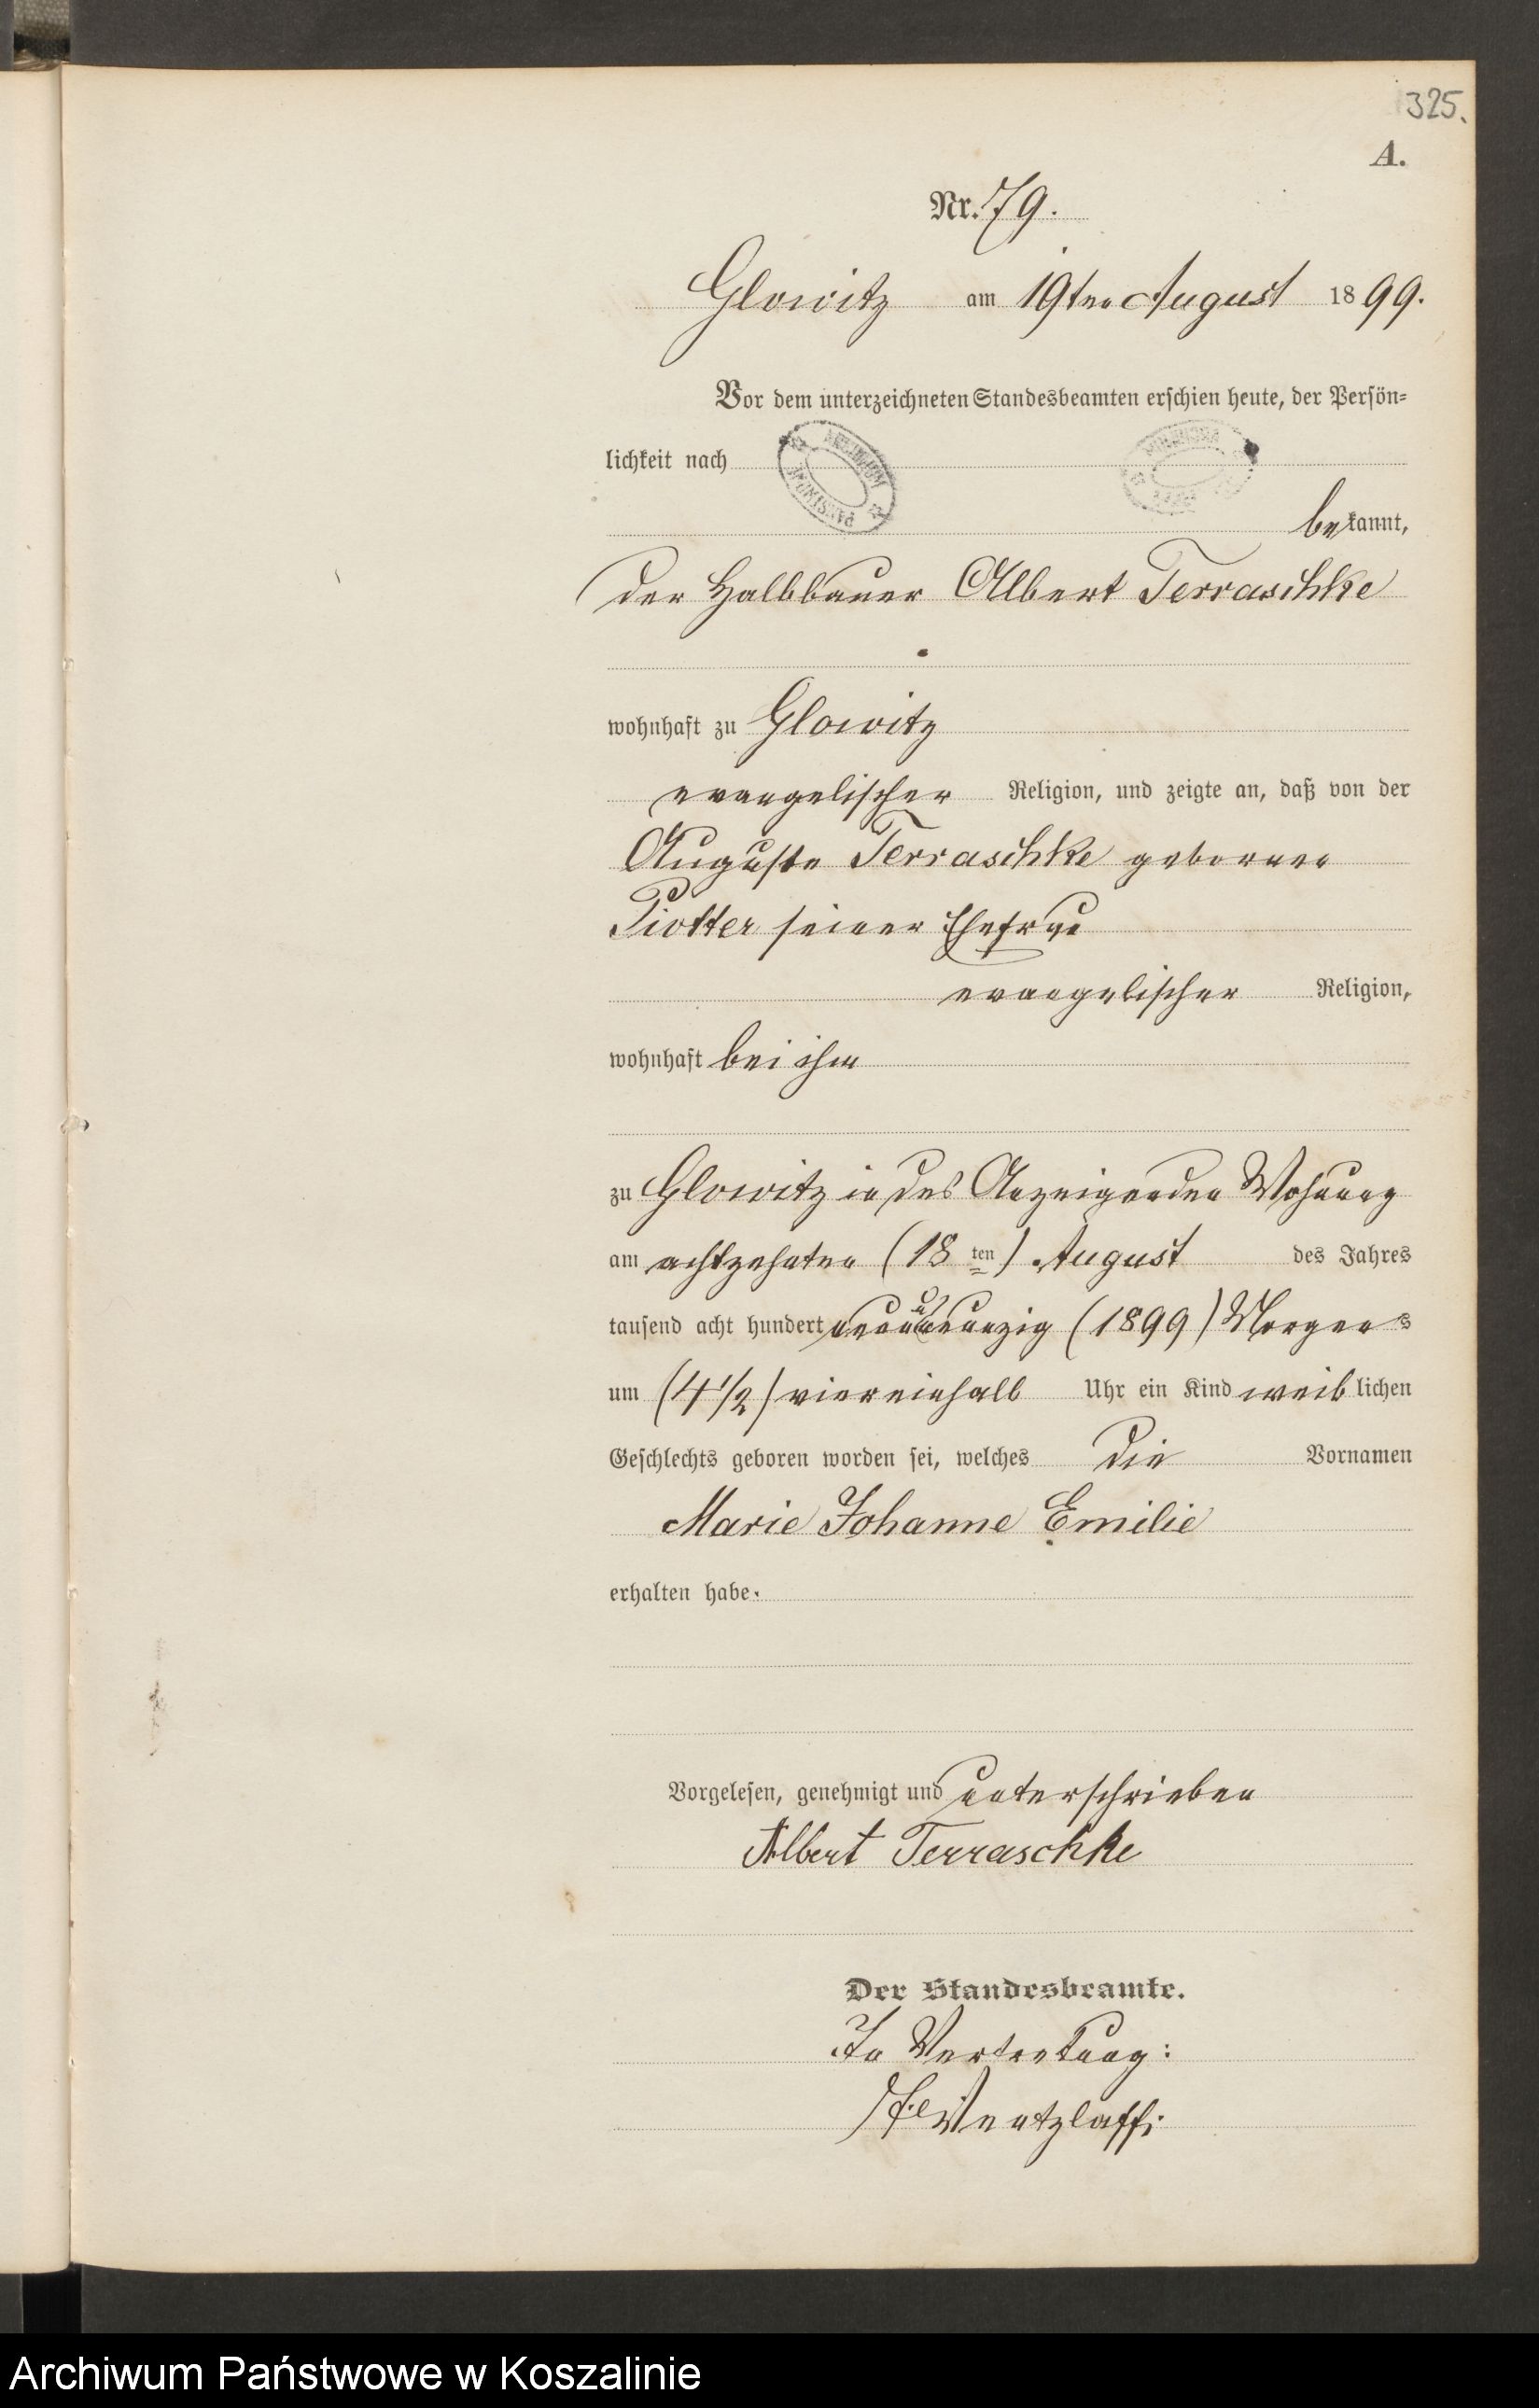 325.
A.
Nr. 79.
Glowitz am 19ten August 1899.
Vor dem unterzeichneten Standesbeamten erschien heute, der Persön-
lichkeit nach
bekannt,
der Halbbauer Albert Terraschke
wohnhaft zu Glowitz
evangelischer Religion, und zeigte an, daß von der
Auguste Terraschke geborenen
Piotter seiner Ehefrau
evangelischer Religion,
wohnhaft bei ihm
zu Glowitz in des Anzeigenden Wohnung
am achtzehnten (18ten) August des Jahres
tausend acht hundert neunundneunzig (1899) Morgens
um (4 1/2) viereinhalb Uhr ein Kind weiblichen
Geschlechts geboren worden sei, welches die Vornamen
Marie Johanne Emilie
erhalten habe.
Vorgelesen, genehmigt und unterschrieben
Albert Terraschke
Der Standesbeamte.
In Vertretung:
Wentzlaff.
Archiwum Państwowe w Koszalinie